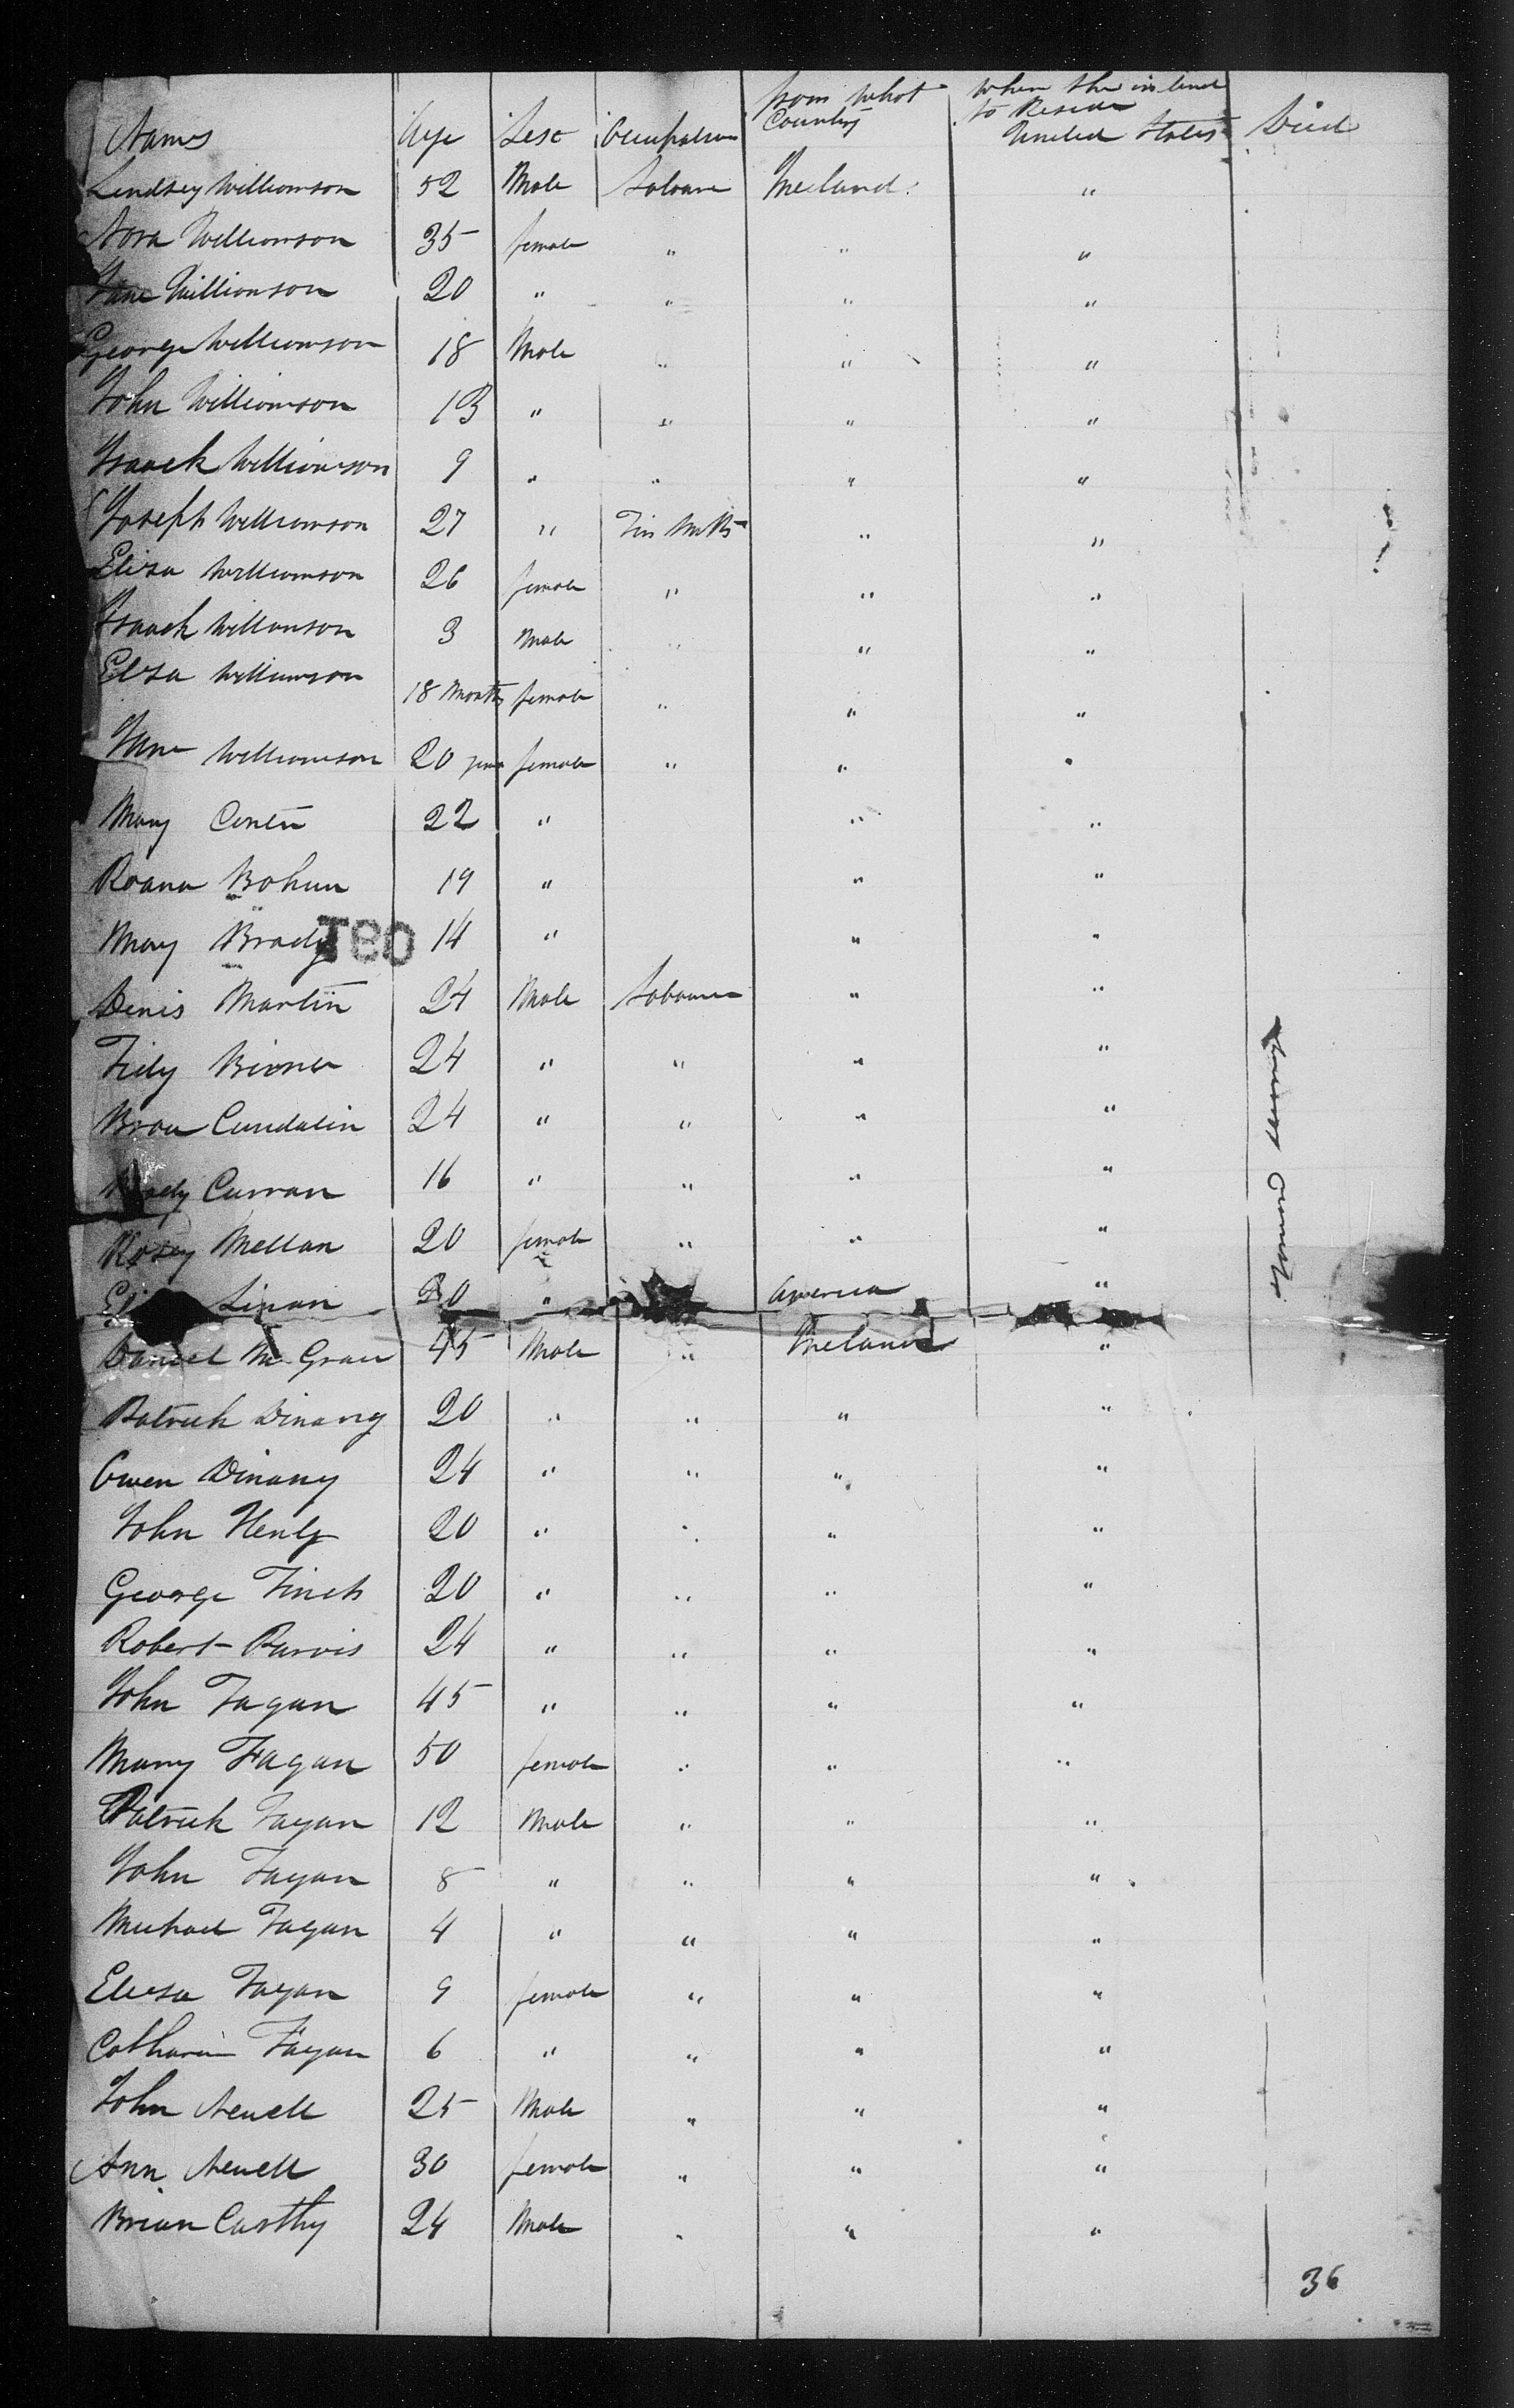 Names Age Sex Occupation from what Country where they intend to Reside United States Died
Lindsey Williamson 52 Male Laboure Ireland "
Nora Williamson 35 female " " "
Jane Williamson 20 " " " "
George Williamson 18 Male " " "
John Williamson 13 " " " "
Isaack Williamson 9 " " " "
Joseph Williamson 27 " Tin " "
Eliza Williamson 26 female " " "
Isaack Williamson 3 Male " " "
Eliza Williamson 18 Months female " " "
Jane Williamson 20 years female " " "
Mary 22 " " "
Roana Bohun 19 " " "
Mary Brady 14 " " "
Denis Martin 24 Male Laboure " "
24 " " " "
Cundalin 24 " " " "
Curran 16 " " " "
Rosey Mellan 20 female " " "
Linan 30 " America "
Daniel Mc Grau 45 Male " Ireland "
Patrick Dinany 20 " " " "
Owen Dinany 24 " " " "
John Henly 20 " " " "
George Finch 20 " " " "
Robert Purvis 24 " " " "
John Fagan 45 " " " "
Mary Fagan 50 female " " "
Patrick Fagan 12 Male " " "
John Fagan 8 " " " "
Michael Fagan 4 " " " "
Eliza Fagan 9 female " " "
Catharin Fagan 6 " " " "
John Newell 25 Male " " "
Ann Newell 30 female " " "
Brian Carthy 24 Male " " "
36